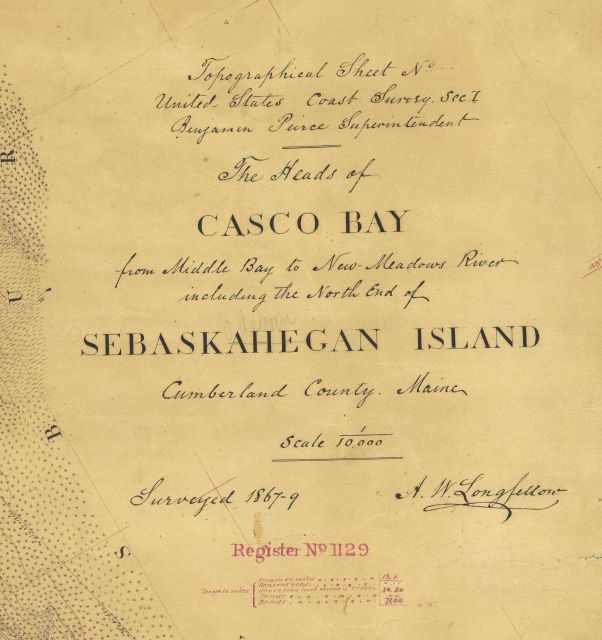 Topographical Sheet No
United States Coast Survey. Sec I
Benjamin Peirce Superintendent
The Heads of
CASCO BAY
from Middle Bay to New-Meadows River
including the North End of
SEBASKAHEGAN ISLAND
Cumberland County. Maine
Scale 1/10,000
Surveyed 1867-9 A. W. Longfellow
Register No 1129
R
U
B
S
Length in miles
Roads
54.80